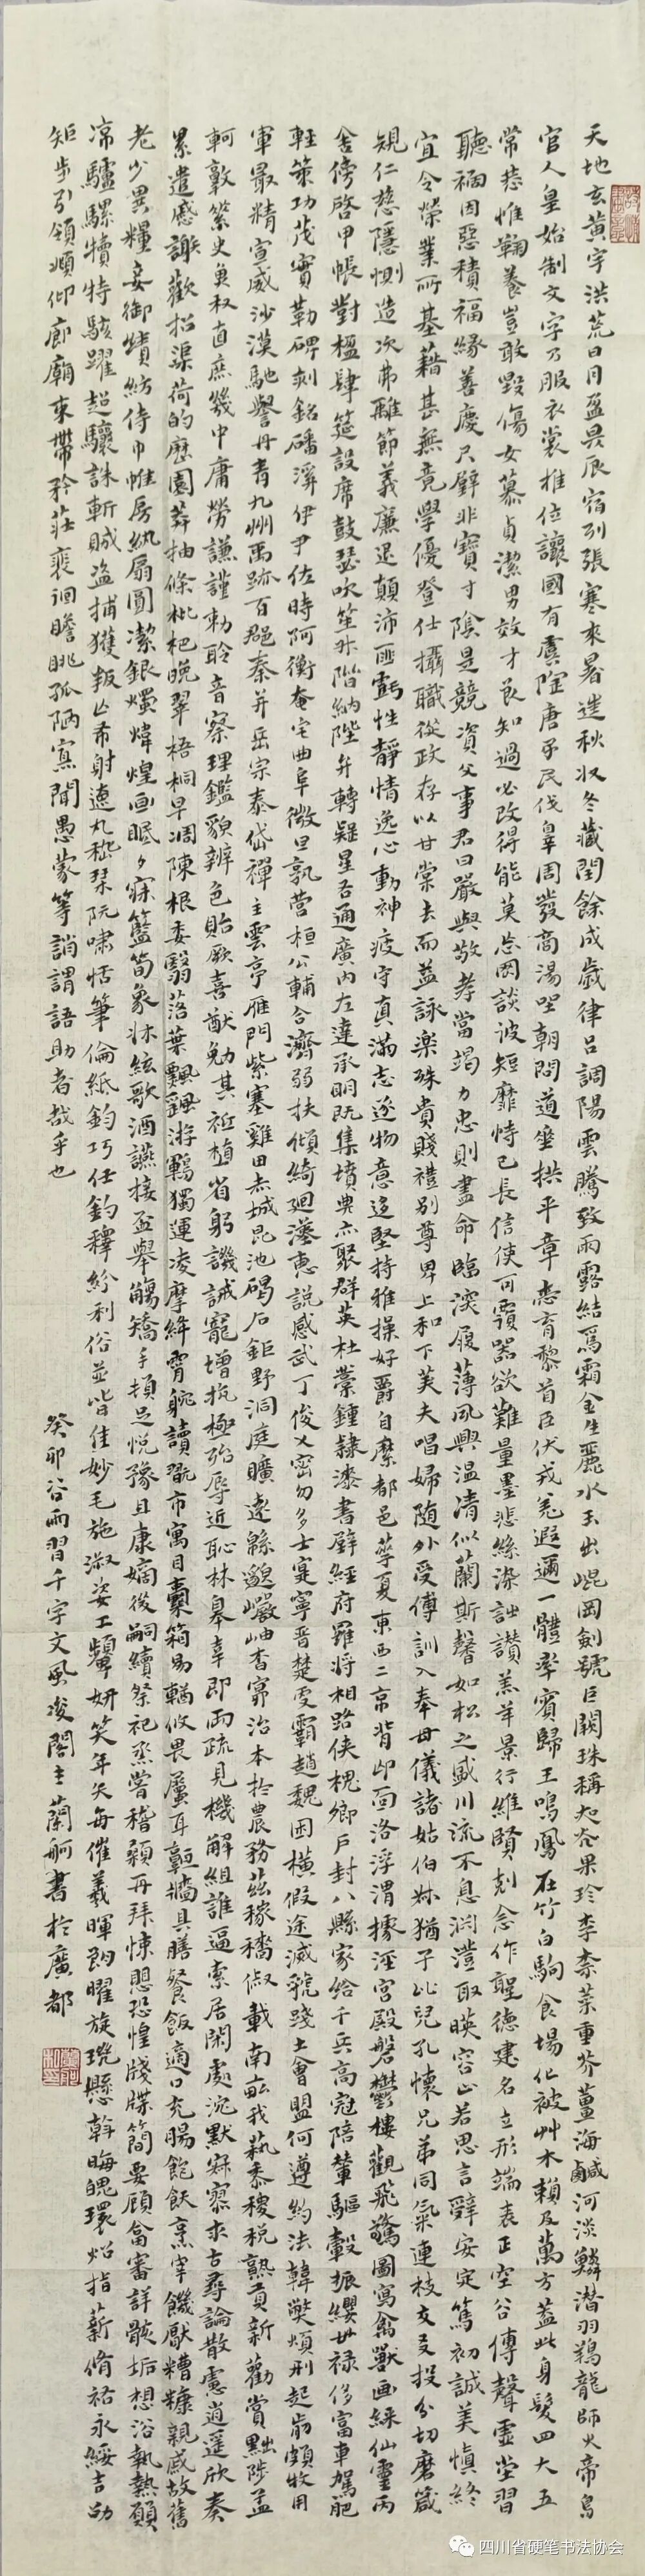 天地玄黃宇洪荒日月盈昃辰宿列張寒來暑迬秋収冬藏閏餘成歲律呂調陽雲騰致雨露結爲霜金生麗水玉出崐岡劍號巨闕珠稱夜光果珍李柰菜重芥薑海鹹河淡鱗潛羽翔龍師火帝鳥
官人皇始制文字乃服衣裳推位讓國有虞陶唐弔民伐辠周發商湯坐朝問道垂拱平章愛育黎首臣伏戎羌遐邇一體率賓歸王鳴鳳在竹白駒食場化被艸木賴及萬方蓋此身髮四大五
常恭惟鞠養豈敢毀傷女慕貞潔男效才良知過必改得能莫忘罔談彼短靡恃己長信使可覆器欲難量墨悲絲染詩讚羔羊景行維賢剋念作聖德建名立形端表正空谷傳聲虛堂習
聽禍因惡積福緣善慶尺璧非寶寸陰是競資父事君曰嚴與敬孝當竭力忠則盡命臨深履薄夙興温凊似蘭斯馨如松之盛川流不息渊澄取暎容止若思言辭安定篤初誠美慎終
宜令榮業所基藉甚無竟學優登仕攝職從政存以甘棠去而益詠楽殊貴賤禮别尊卑上和下芺夫唱婦随外受傅訓入奉母儀諸姑伯妹猶子比兒孔懷兄弟同氣連枝交友投分切磨箴
規仁慈隱惻造次弗離節義廉退顛沛匪虧性靜情逸心動神疲守真滿志逐物意迻堅持雅操好爵自縻都邑華夏東西二京背邙面洛浮渭據涇宮殿磐鬱樓觀飛驚圖寫禽獸画綵仙靈丙
舍傍啓甲帳對楹肆筵設席鼓瑟吹笙升階納陛弁轉疑星右通廣内左達承明既集墳典亦聚群英杜稾鍾隸漆書壁經府羅将相路俠槐鄉戶封八縣家給千兵高冠陪輦驅轂振纓世禄侈富車駕肥
輕策功茂實勒碑刻銘磻溪伊尹佐時阿衡奄宅曲阜微旦孰營桓公輔合濟弱扶傾綺迴漢惠說感武丁俊乂密勿多士寔寧晋楚更霸趙魏困横假途滅虢踐土會盟何遵約法韓弊煩刑起翦頗牧用
軍最精宣威沙漠馳譽丹青九州禹跡百郡秦并岳宗泰岱禪主雲亭雁門紫塞雞田赤城昆池碣石鉅野洞庭曠遠緜邈巖岫杳冥治本於農務茲稼穡俶載南畝我蓺黍稷税熟貢新勸賞黜陟孟
軻敦素史魚秉直庶幾中庸勞謙謹勑聆音察理鑑貌辨色貽厥嘉猷勉其祗植省躬譏誡寵增抗極殆辱近恥林皋幸即兩疏見機解組誰逼索居閑處沉默寂寥求古尋論散慮逍遥欣奏
累遣慼謝歡招渠荷的歷園莽抽條枇杷晚翠梧桐早凋陳根委翳落葉飄颻游鵾獨運凌摩絳霄躭讀翫市寓目囊箱易輶攸畏屬耳垣牆具膳餐飯適口充腸飽飫烹宰饑厭糟糠親戚故舊
老少異糧妾御績紡侍巾帷房紈扇圓潔銀燭煒煌画眠夕寐籃筍象牀絃歌酒讌接盃舉觴矯手頓足悅豫且康嫡後嗣續祭祀烝嘗稽顙再拜悚懼恐惶牋牒簡要顧答審詳骸垢想浴執熱願
涼驢騾犢特駭躍超驤誅斬賊盗捕獲叛亡布射遼丸嵇琴阮嘯恬筆倫紙鈞巧任釣釋紛利俗並皆佳妙毛施淑姿工顰妍笑年矢每催羲暉朗曜旋璣懸斡晦魄環炤指薪脩祜永綏吉劭
矩步引領頫仰廊廟束帶矜莊裵回瞻眺孤陋寡聞愚蒙等誚謂語助者哉乎也
癸卯谷雨習千字文風浚閣主蘭舸書於廣都
四川省硬笔书法协会